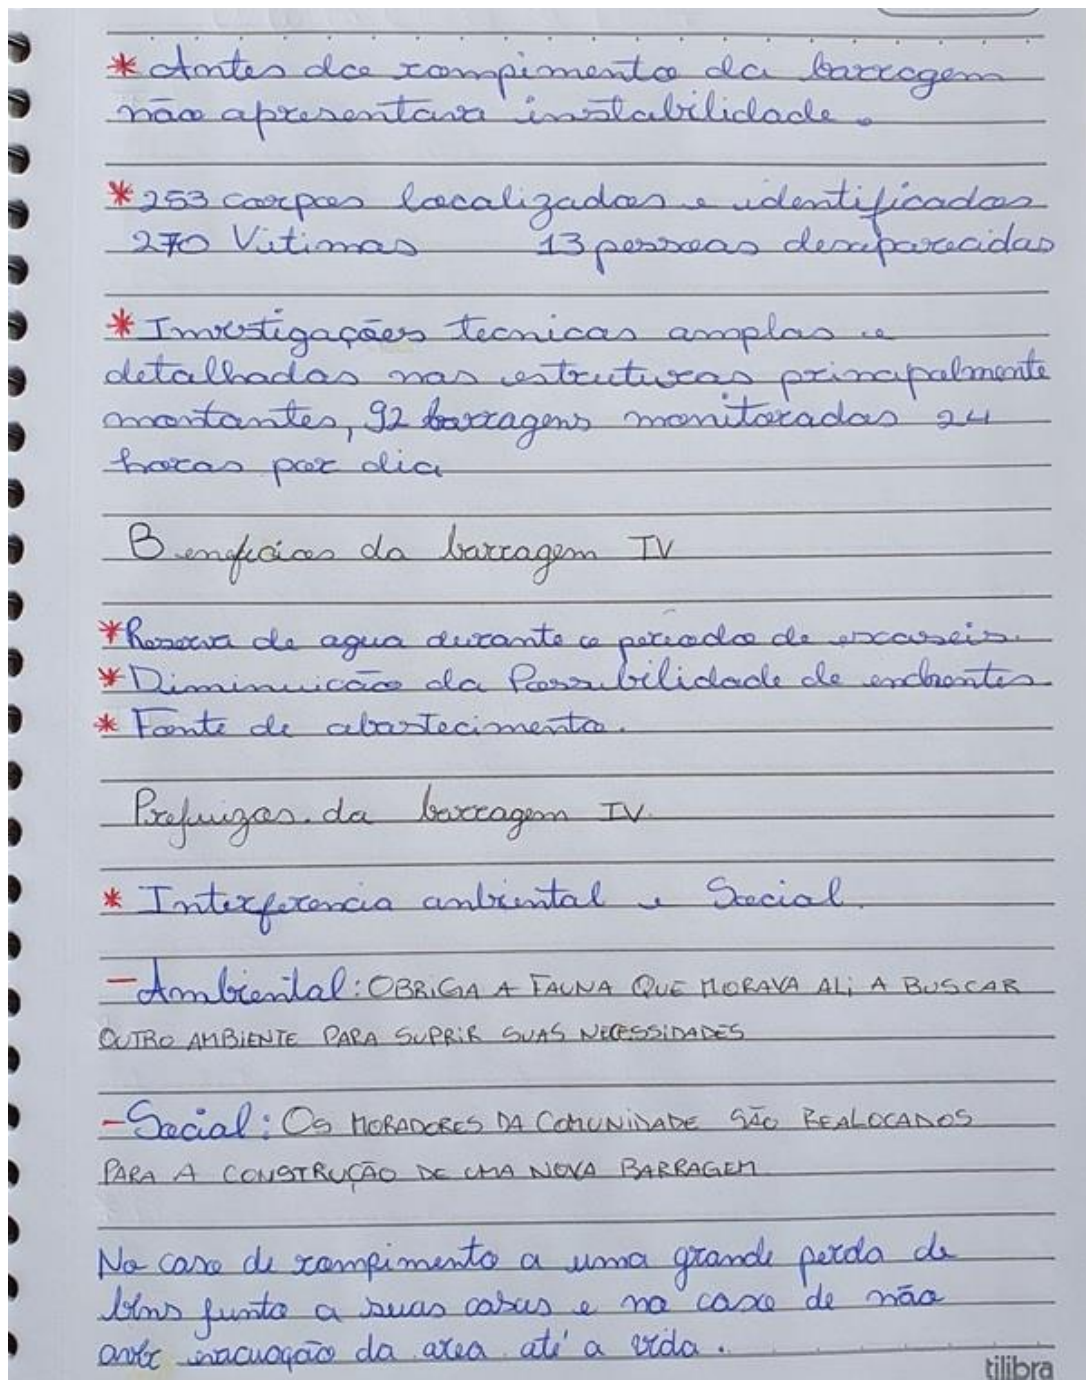 * Antes do rompimento da barragem
não apresentava instabilidade.
* 253 corpos localizados e identificados
270 Vitimas 13 pessoas desaparecidas
* Investigações tecnicas amplas e
detalhadas nas estruturas principalmente
montantes, 92 barragens monitoradas 24
horas por dia
Beneficios da barragem IV
* Reserva de agua durante o periodo de escaseis.
* Diminuicão da Possibilidade de enchentes
* Fonte de abastecimento.
Prejuizos da barragem IV.
* Interferencia anbiental e Social.
- Ambiental: OBRIGA A FAUNA QUE MORAVA ALI A BUSCAR
OUTRO AMBIENTE PARA SUPRIR SUAS NECESSIDADES
- Social: OS MORADORES DA COMUNIDADE SÃO REALOCADOS
PARA A CONSTRUÇÃO DE UMA NOVA BARRAGEM
No caso de rompimento a uma grande perda de
bens junto a suas casas e no caso de não
aver evacuação da area até a vida.
tilibra